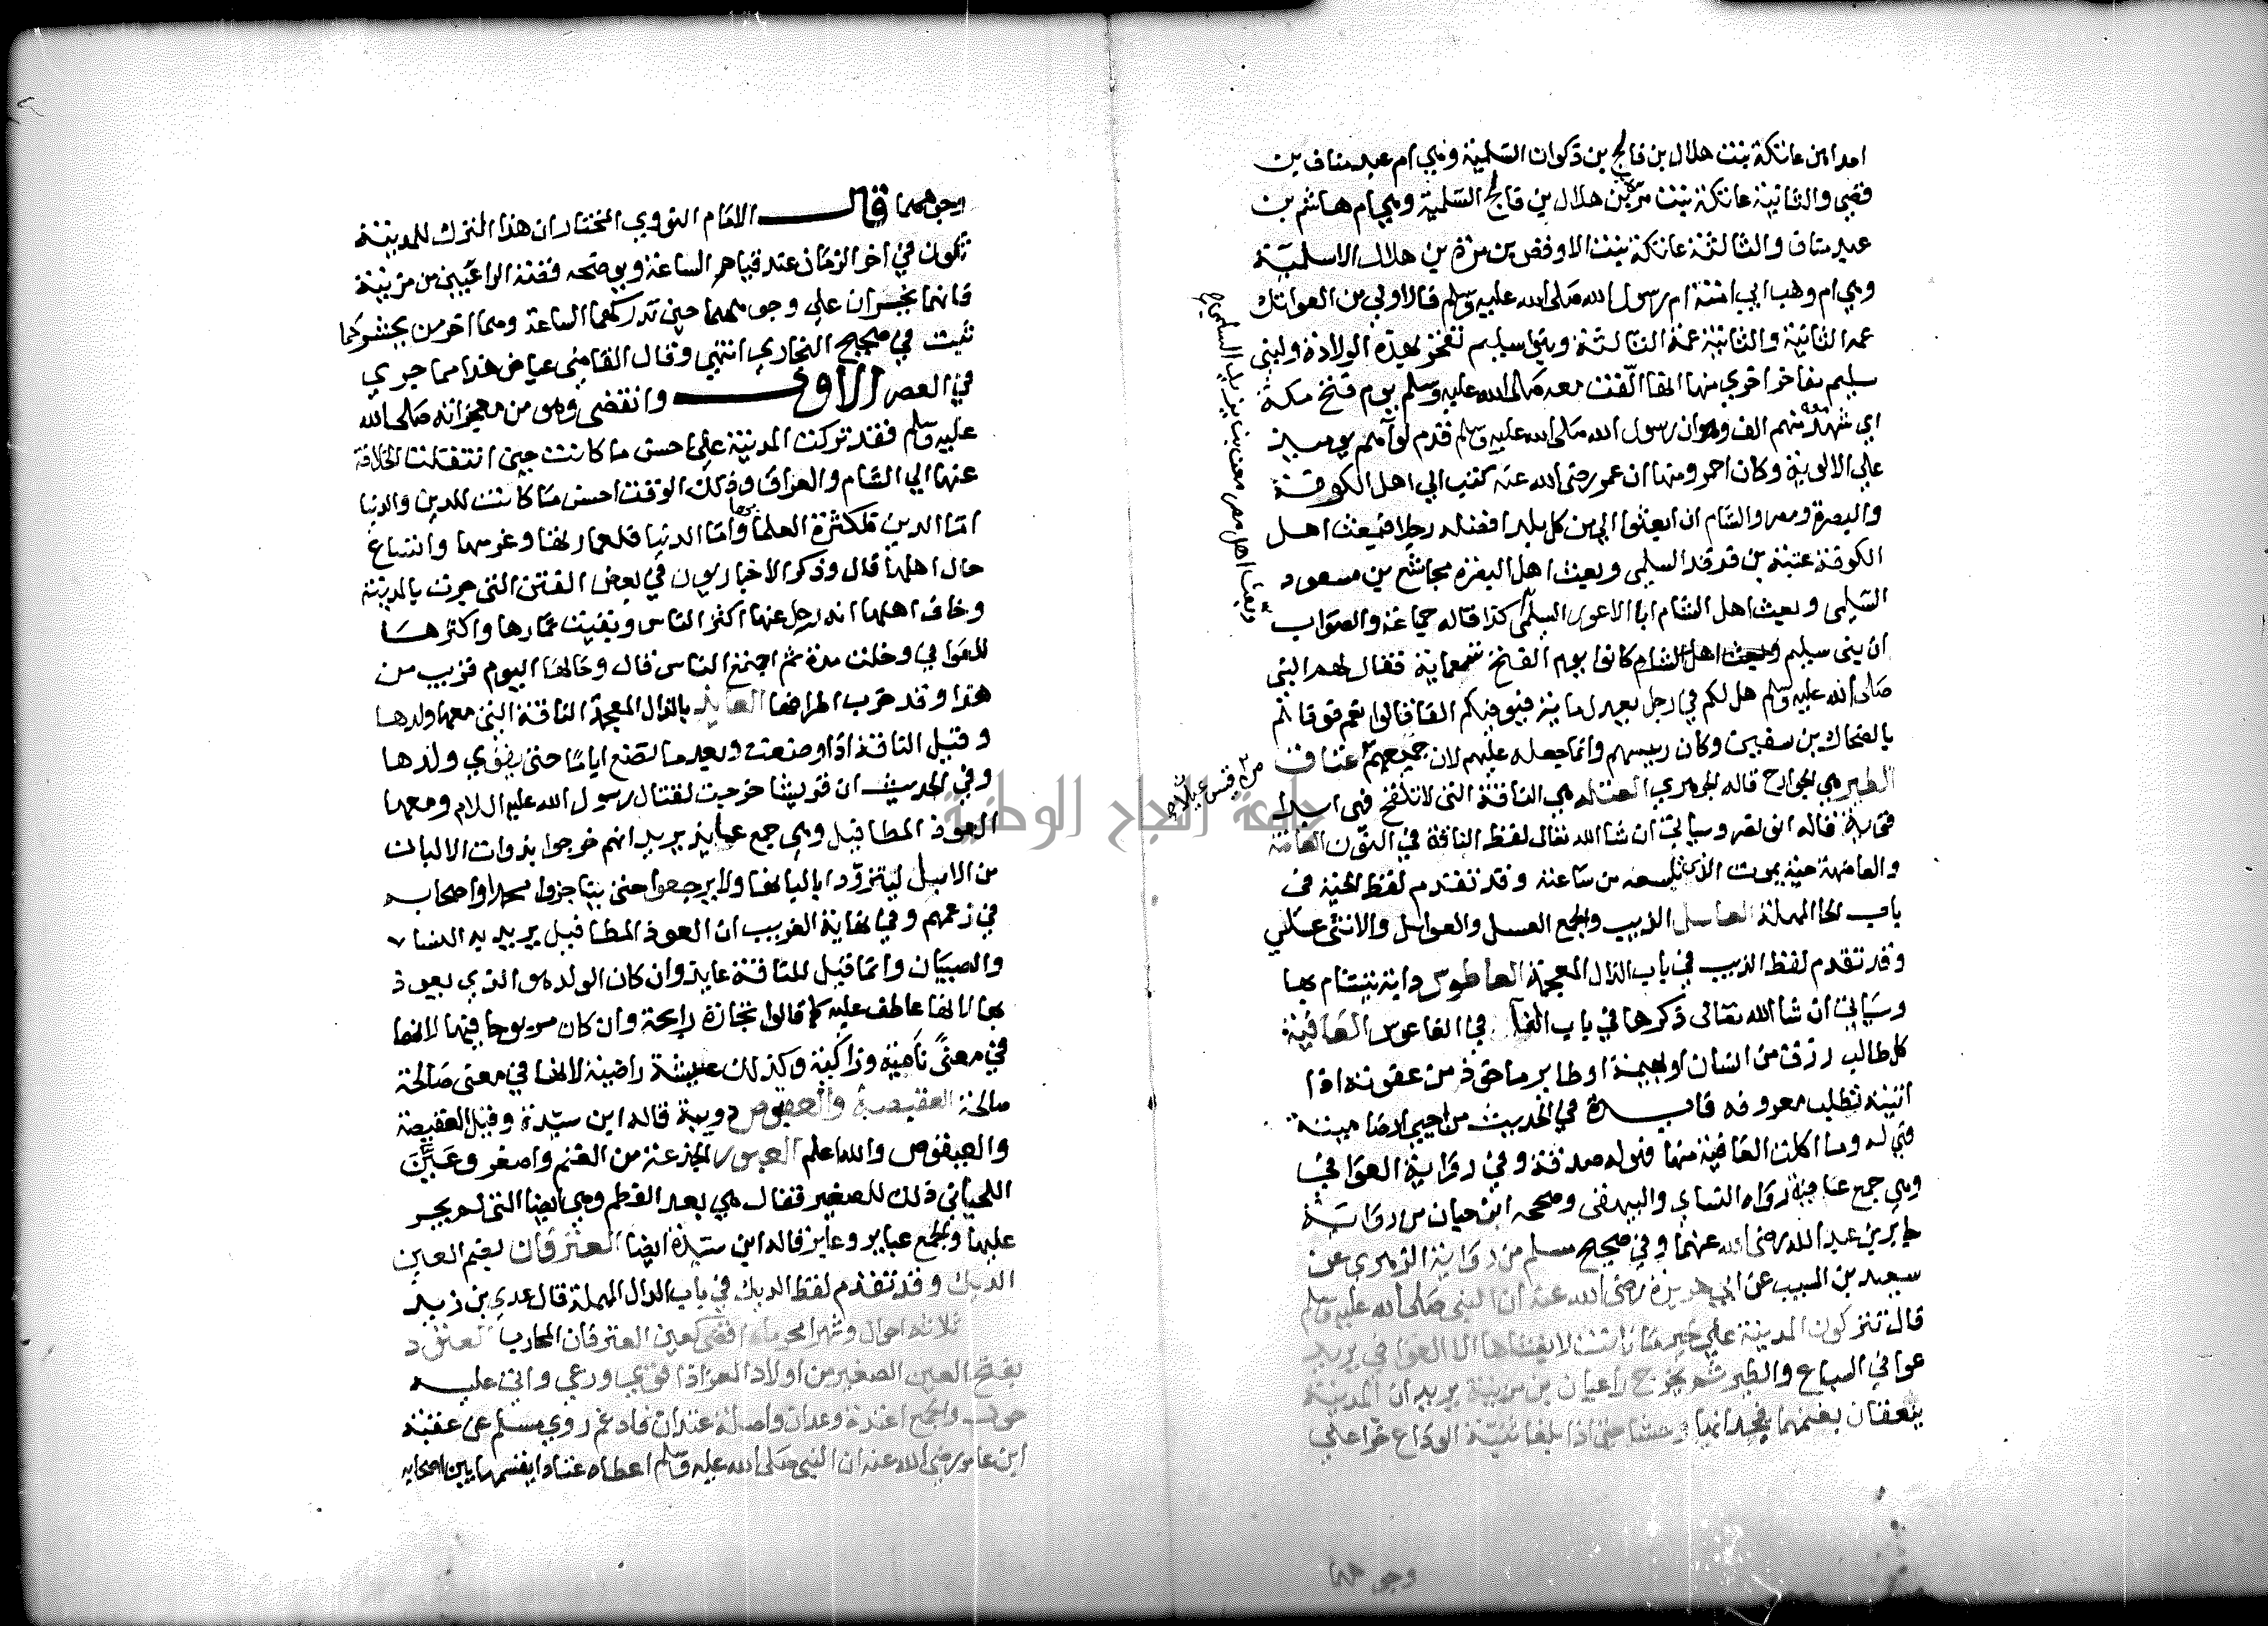 احداهن عاتكة بنت هلال بن فالح بن ذكوان السلمية وهي ام عبد مناف بن
قصي والثانية عاتكة بنت مرة بن هلال بن فالح السلمية وهي ام هاشم بن
عبد مناف والثالثة عاتكة بنت الاوقص بن مرة بن هلال الاسلمية
وهي ام وهب ابي امنة ام رسول الله صلى الله عليه وسلم فالاولي من العواتك
عمة الثانية والثانية عمة الثالثة وبنوا سليم تفخر بهذه الولادة ولبني
سليم مفاخر اخري منها انها الّفت معه صلى الله عليه وسلم يوم فتح مكة
اي شهده منهم الف ومنها ان رسول الله صلى الله عليه وسلم قدم لوآهم يوميذ
علي الالوية وكان احمر ومنها ان عمر رضى الله عنه كتب الي اهل الكوفة
والبصرة ومصر والشام ان ابعثوا الي من كل بلد افضله رجلا فبعث اهل
الكوفة عتبة بن فرقد السلمي وبعث اهل البصرة مجاشع بن مسعود
السلمي وبعث اهل الشام ابا الاعور السلمي كذا قاله جماعة والصواب
وبعث اهل مصر معن بن يزيد السلمي
ان بني سليم كانوا يوم الفتح تسعماية فقال لهم النبي
صلى الله عليه وسلم هل لكم في رجل يعدل ماية فيوفيكم الفا قالوا نعم فوفاهم
بالضحاك بن سفين وكان رييسهم وانما جعله عليهم لان جميعهم
من قيس عيلان
عتاق الطير هي الجوارح قاله الجوهري العتلة هي الناقة التي لا تلقح فهى ابدا
قوية قاله ابو نصر وسياتي ان شا الله تعالى لفظ الناقة في النون العاضة
والعاضهة حية يموت الذي تلسعه من ساعته وقد تقدم لفظ الحية في
باب الحا المهملة العاسل الذيب والجمع العسل والعواسل والانثى عسلي
وقد تقدم لفظ الذيب في باب الذال المعجمة العاطوس دابة يتشام بها
وسياتي ان شا الله تعالى ذكرها في باب الفآ في الفاعوس العافية
كل طالب رزق من انسان او بهيمة او طاير ماخوذ من عفوته اذا
اتيته تطلب معروفه فايدة في الحديث من احيي ارضا ميتة
فهي له وما اكلت العافية منها فهو له صدقة وفي رواية العوافي
وهي جمع عافية رواه النساي والبيهقى وصححه ابن حبان من رواية
جابر بن عبد الله رضى الله عنهما وفي صحيح مسلم من رواية الزهري عن
سعيد بن المسيب عن ابي هريرة رضى الله عنه ان النبي صلى الله عليه وسلم
قال تتركون المدينة علي خير ما كانت لا يغشاها الا العوافي يريد
عوافي السباع والطير ثم يخرج راعيان من مزينة يريدان المدينة
ينعقان بغنمهما فيجدانها وحشا حتى اذا بلغا ثنية الوداع خرا على
وجوههما
وجوههما قال الامام النووي المختار ان هذا الترك للمدينة
تكون في اخر الزمان عند قيام الساعة ويوضحه قصة الراعيين من مزينة
فانهما يخران علي وجوههما حين تدركهما الساعة وهما اخر من يحشر كما
ثبت في صحيح البخاري انتهي وقال القاضى عياض هذا مما جري
في العصر الاول وانقضى وهو من معجزاته صلى الله
عليه وسلم فقد تركت المدينة علي احسن ما كانت حين انتقلت الخلافة
عنها الي الشام والعراق وذلك الوقت احسن ما كانت للدين والدنيا
اما الدين فلكثرة العلما بها واما الدنيا فلعمارتها وغرسها واتساع
حال اهلها قال وذكر الاخباريون في بعض الفتن التي جرت بالمدينة
وخاف اهلها انه رحل عنها اكثر الناس وبقيت ثمارها واكثرها
للعوافي وخلت مدة ثم اجتمع الناس قال وحالها اليوم قريب من
هذا وقد خرب اطرافها العايذ بالذال المعجمة الناقة التي معها ولدها
وقيل الناقة اذا وضعت وبعد ما تضع اياما حتى يقوي ولدها
وفي الحديث ان قريشا خرجت لقتال رسول الله عليه السلام ومعها
العوذ المطافيل وهي جمع عايذ يريد انهم خرجوا بذوات الالبان
من الابل ليتزودا بالبانها ولا يرجعوا حتى يناجزوا محمدا واصحابه
في زعمهم وفي نهاية الغريب ان العوذ المطافيل يريد به النسا
والصبيان وانما قيل للناقة عايذ وان كان الولد هو الذي يعوذ
بها لانها عاطف عليه كما قالوا تجارة رابحة وان كان مربوحا فيها لانها
في معني نامية وزاكية وكذلك عيشة راضية لانها في معنى صالحة
صالحة العقيصة والعقوص دويبة قاله ابن سيدة وقيل العقيصة
والعيقوص والله اعلم العبور الجذعة من الغنم واصغر وعيّن
اللحياني ذلك للصغير فقال هي بعد الفطم وهي ايضا التي لم يجر
عليها والجمع عباير وعابر قاله ابن سيدة ايضا العترفان بضم العين
الديك وقد تقدم لفظ الديك في باب الدال المهملة قال عدي بن زيد
ثلاثة احوال وشهرا محرما اقضي كعين العترفان المحارب العتود
بفتح العين الصغير من اولاد المعز اذا قوي ورعي واتي عليه
حول والجمع اعتدة وعدان واصله عتدان فادغم روي مسلم عن عقبة
ابن عامر رضى الله عنه ان النبي صلى الله عليه وسلم اعطاه غنما يقسمها بين اصحابه
جامعة النجاح الوطنية